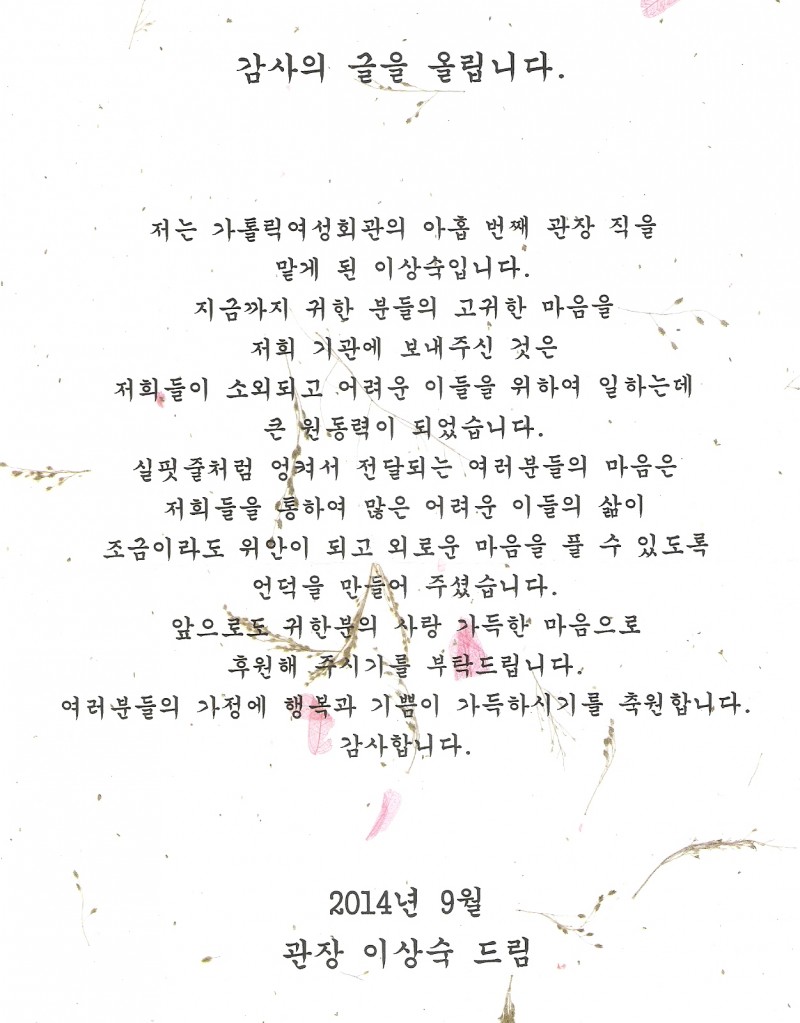 감사의 글을 올립니다.
저는 가톨릭여성회관의 아홉 번째 관장 직을
맡게 된 이상숙입니다.
지금까지 귀한 분들의 고귀한 마음을
저희 기관에 보내주신 것은
저희들이 소외되고 어려운 이들을 위하여 일하는데
큰 원동력이 되었습니다.
실핏줄처럼 엉켜서 전달되는 여러분들의 마음은
저희들을 통하여 많은 어려운 이들의 삶이
조금이라도 위안이 되고 외로운 마음을 풀 수 있도록
언덕을 만들어 주셨습니다.
앞으로도 귀한분의 사랑 가득한 마음으로
후원해 주시기를 부탁드립니다.
여러분들의 가정에 행복과 기쁨이 가득하시기를 축원합니다.
감사합니다.
2014년 9월
관장 이상숙 드림